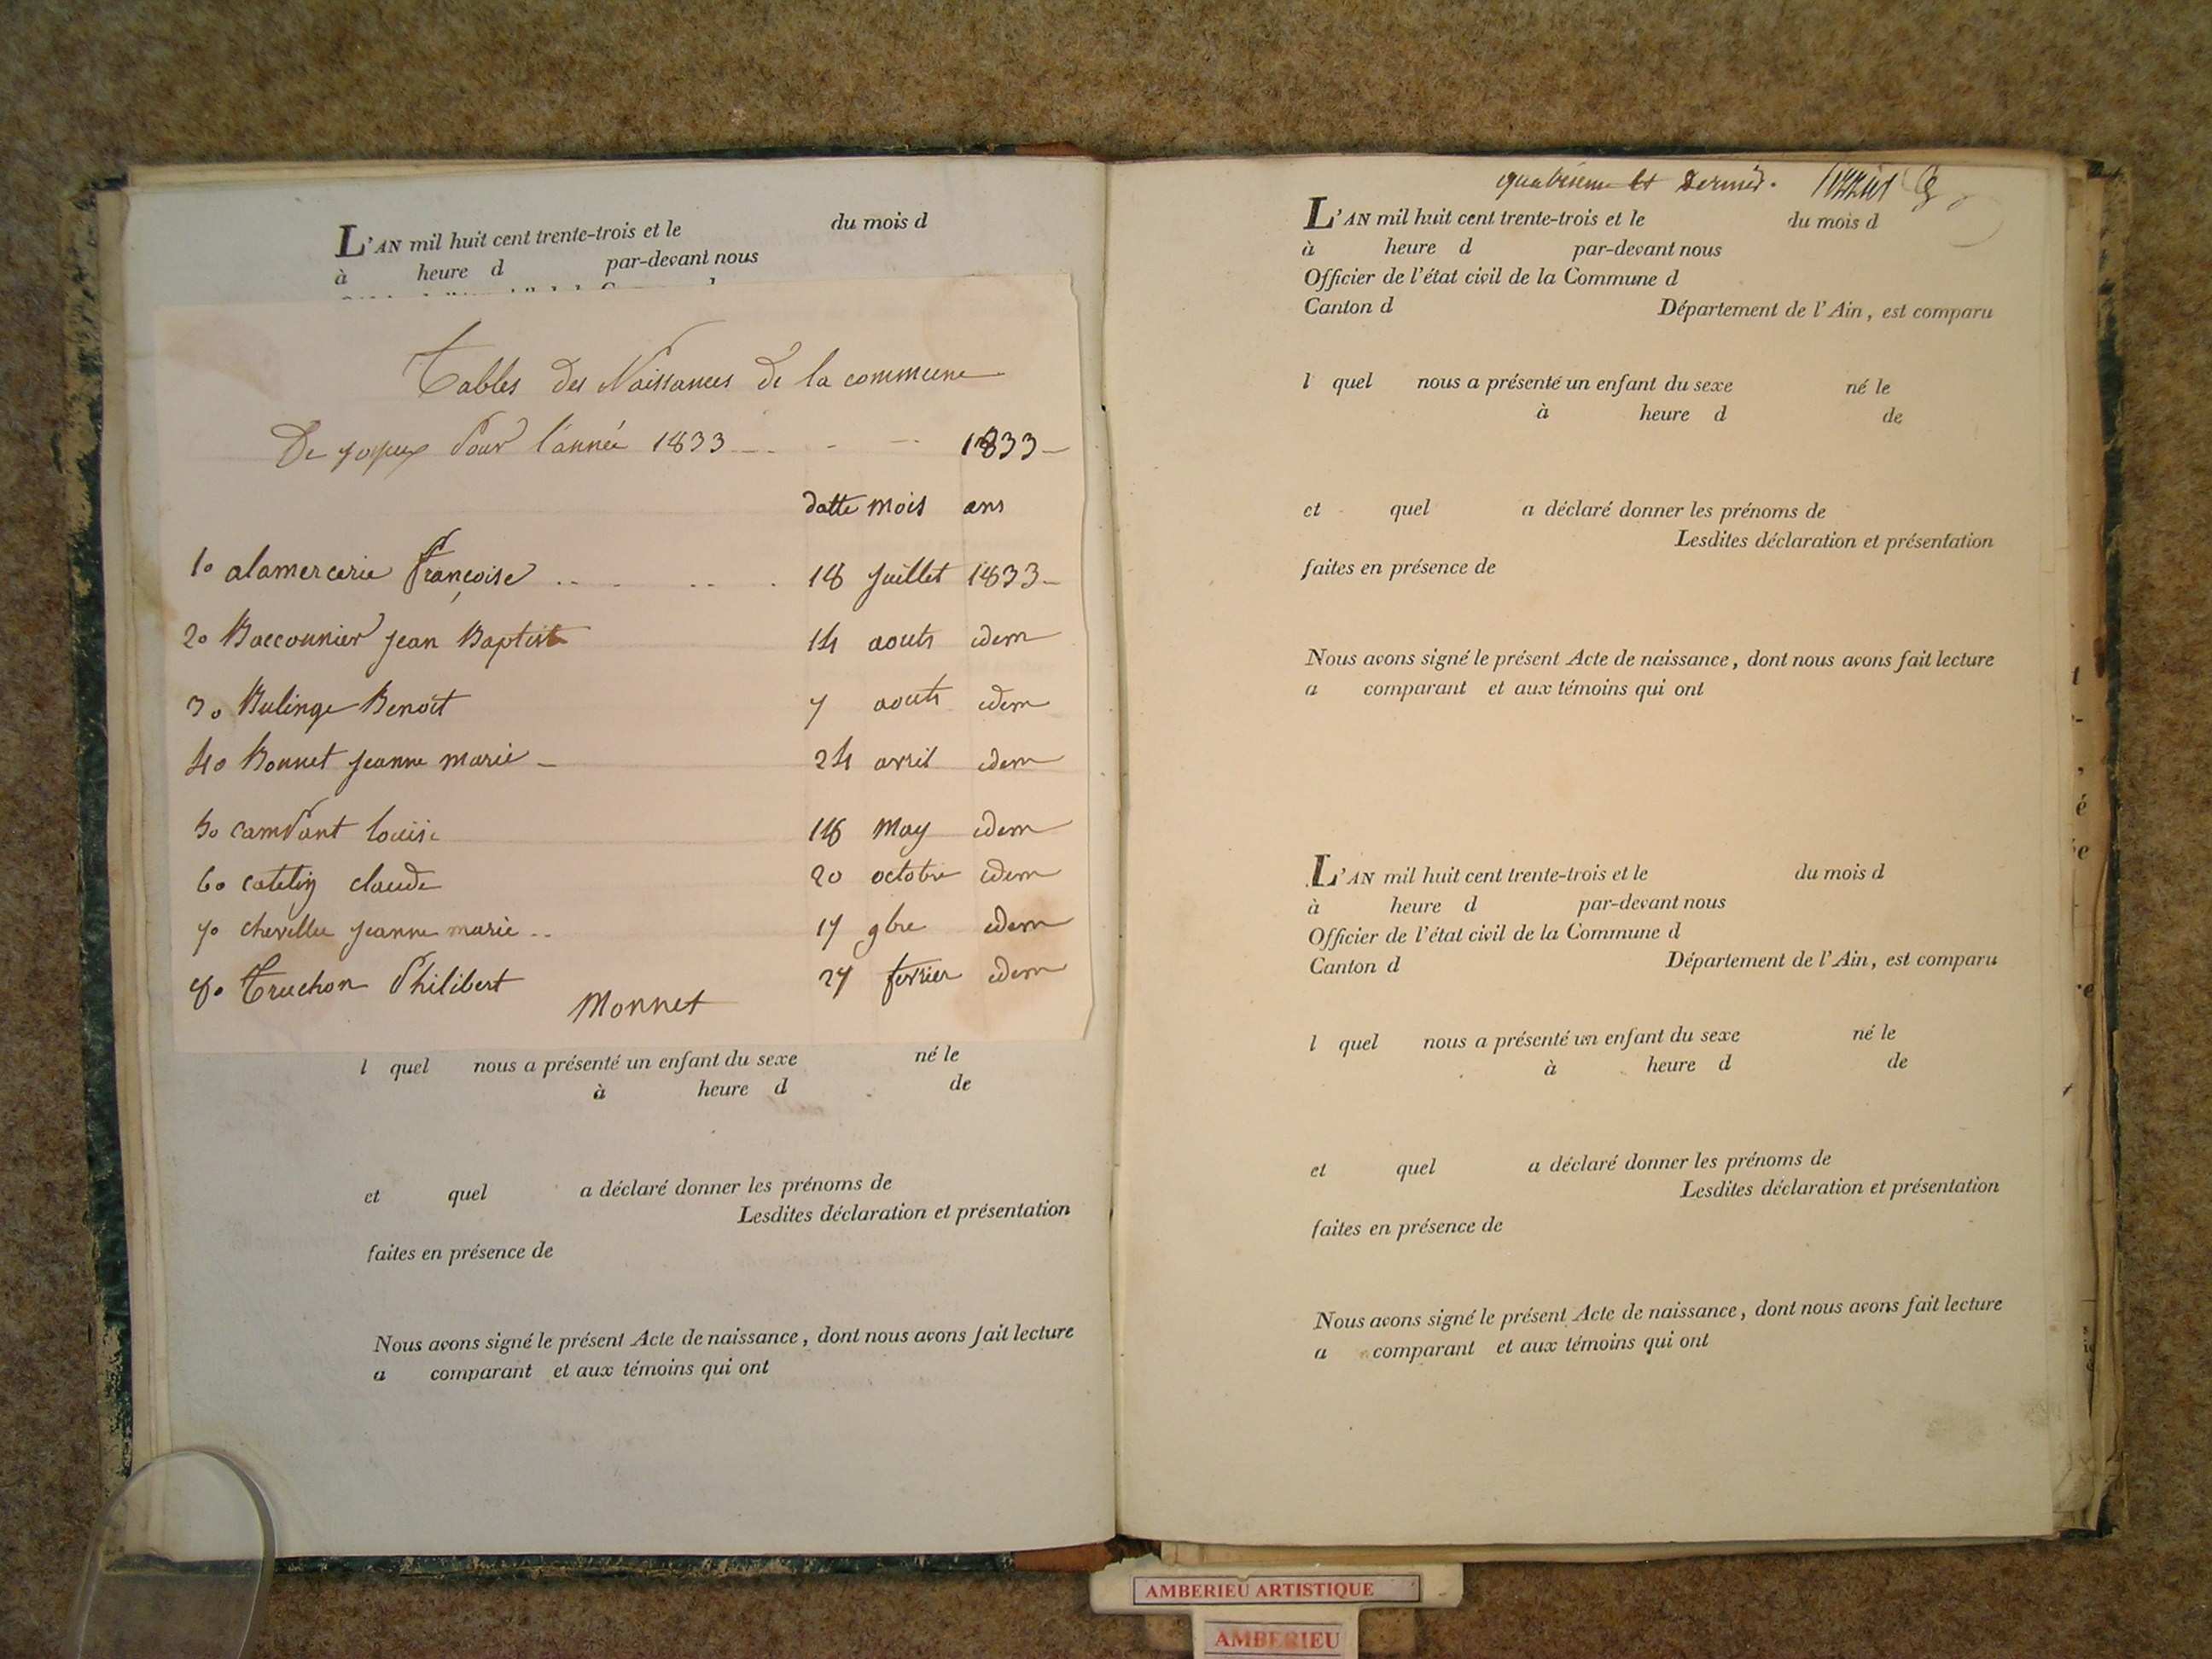 L'AN mil huit cent trente-trois et le du mois d
à heure d par-devant nous
Tables des Naissances de la commune
De joyeux Pour l'année 1833 - - - 1833
datte mois ans
1o alamercerie françoise .. . .. . 18 juillet 1833
2o Bacconnier jean Baptiste 14 aouts idem
3o Bulinge Benoit 7 aouts idem
4o Bonnet jeanne marie 24 avril idem
5o camPant louise 18 May idem
6o catelin claude 20 octobre idem
7o chevellu jeanne marie .. 17 9bre idem
8o Truchon Philibert 27 fevrier idem
Monnet
l quel nous a présenté un enfant du sexe né le
à heure d de
et quel a déclaré donner les prénoms de
Lesdites déclaration et présentation
faites en présence de
Nous avons signé le présent Acte de naissance, dont nous avons fait lecture
a comparant et aux témoins qui ont
quatrieme et Dernier.
L'AN mil huit cent trente-trois et le du mois d
à heure d par-devant nous
Officier de l'état civil de la Commune d
Canton d Département de l'Ain, est comparu
l quel nous a présenté un enfant du sexe né le
à heure d de
et quel a déclaré donner les prénoms de
Lesdites déclaration et présentation
faites en présence de
Nous avons signé le présent Acte de naissance, dont nous avons fait lecture
a comparant et aux témoins qui ont
L'AN mil huit cent trente-trois et le du mois d
à heure d par-devant nous
Officier de l'état civil de la Commune d
Canton d Département de l'Ain, est comparu
l quel nous a présenté un enfant du sexe né le
à heure d de
et quel a déclaré donner les prénoms de
Lesdites déclaration et présentation
faites en présence de
Nous avons signé le présent Acte de naissance, dont nous avons fait lecture
a comparant et aux témoins qui ont
AMBERIEU ARTISTIQUE
AMBERIEU